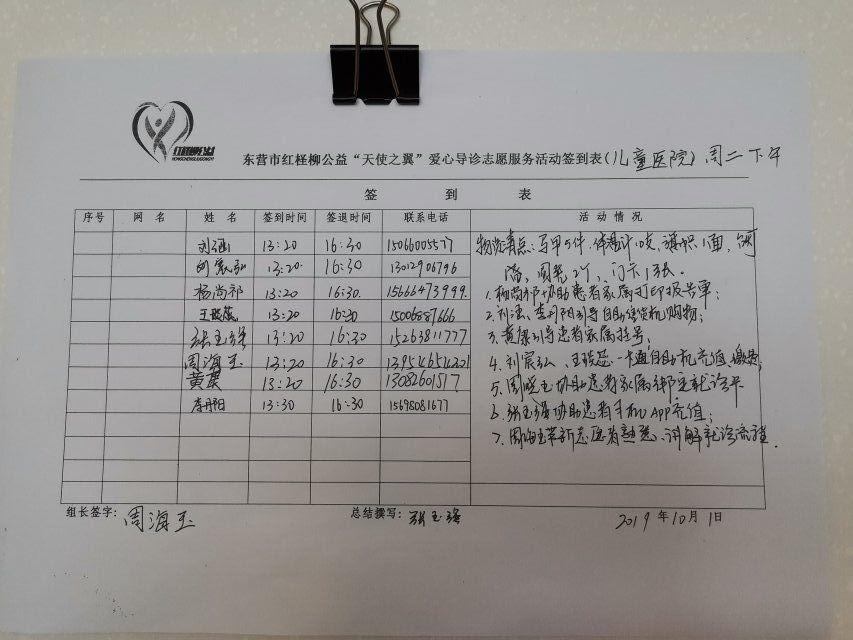 红柽柳公益
HONGCHENGLIUGONGYI
东营市红柽柳公益“天使之翼”爱心导诊志愿服务活动签到表(儿童医院) 周二下午
签 到 表
序号 网名 姓名 签到时间 签退时间 联系电话 活动情况
刘涵 13:20 16:30 15066005577
刘 13:20 16:30 13012906796
杨尚祁 13:20 16:30. 15666473999
王 13:20 16:30 15006887666
张玉强 13:20 16:30 15263811777
周海玉 13:20 16:30
黄 13:20 16:30 13082601517
李丹阳 13:30 16:30 15698081677
物资清点:马甲9件,体温计10支,旗帜1面,
门卡1张.
1.杨尚祁协助患者家属打印报告单;
2.刘涵、李丹阳引导自助售货机购物;
3.黄 引导患者家属挂号;
4. 一卡通自助机充值、缴费;
5.周海玉协助患者家属绑定就诊卡
6.张玉强协助患者手机APP充值;
7.周海玉带新志愿者熟悉、讲解就诊流程.
组长签字: 周海玉 总结撰写: 张玉强 2019年10月1日